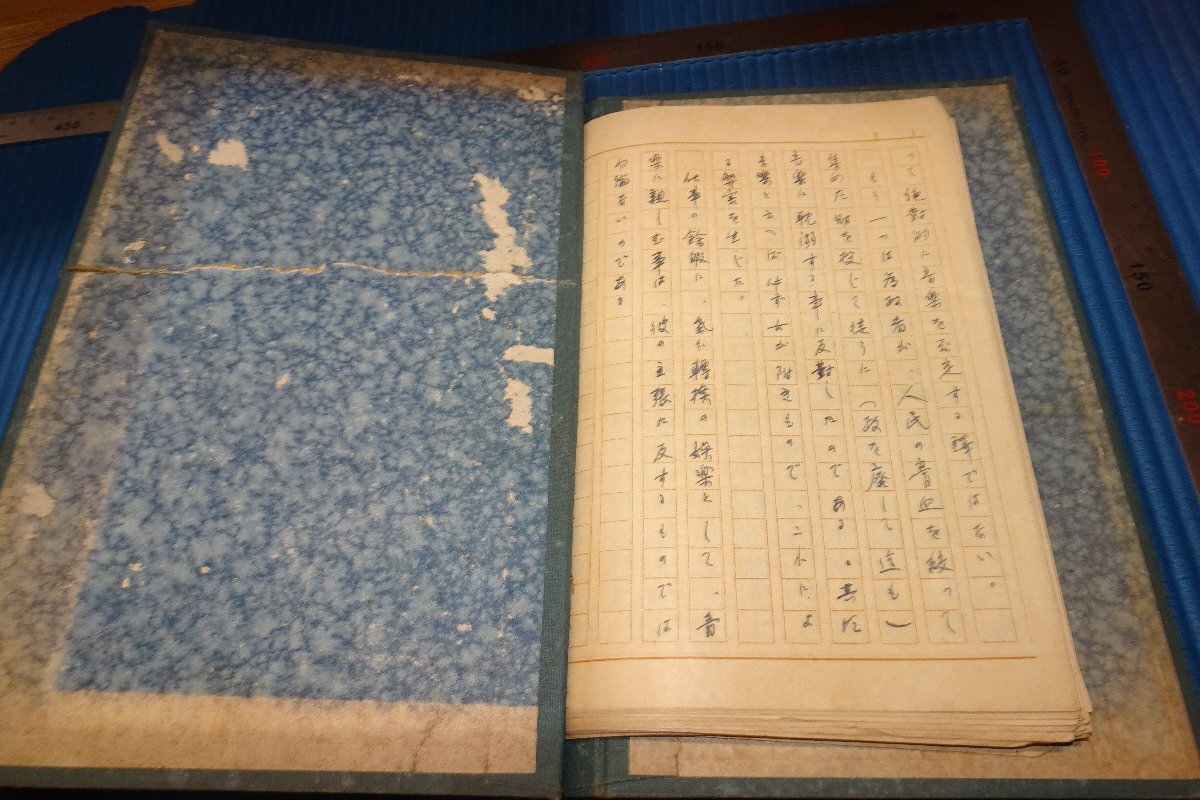 つて絶對的に音楽を否定する譯ではない。
もう一つは為政者が、人民の膏血を絞つて
集めた財を投じて徒らに(政を廢して迄も)
音楽に耽溺する事に反對したのである。其后
音楽と云つば 女が附きもので、これによ
る弊害を生じた。
仕事の餘暇に、氣分轉換の娯楽として、音
楽に親しむ事は、彼の主張に反するものでは
勿論ないのである
450
200
150
50
100
150
200